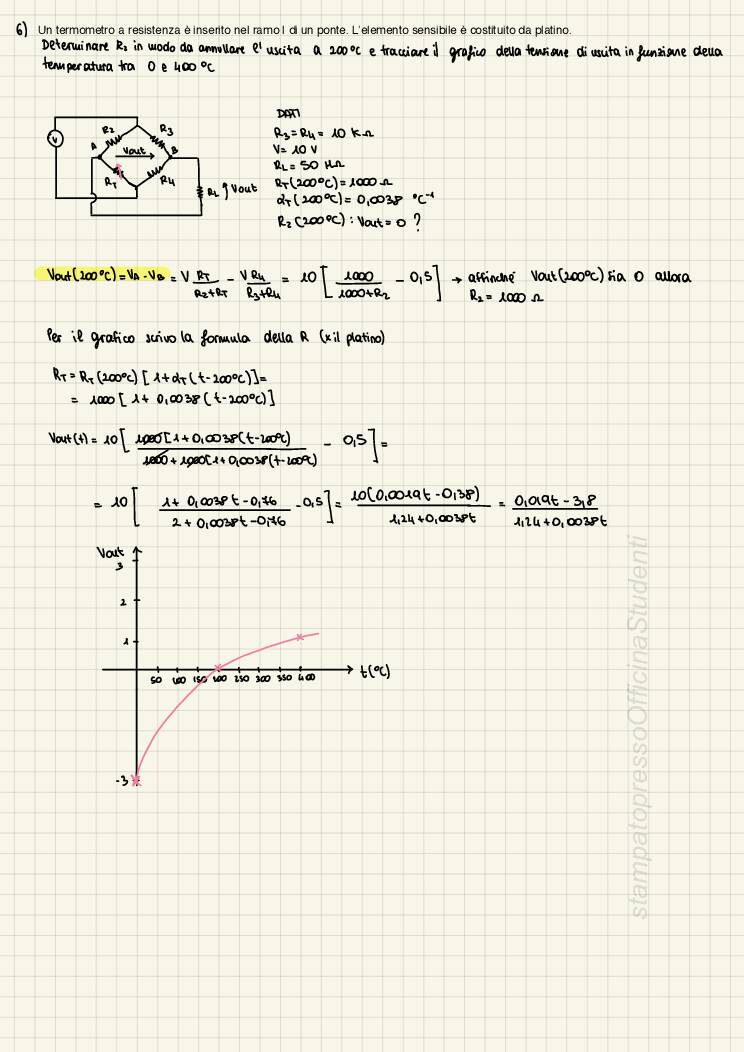 6) Un termometro a resistenza è inserito nel ramo I di un ponte. L'elemento sensibile è costituito da platino.
Determinare R2 in modo da annullare l'uscita a 200°C e tracciare il grafico della tensione di uscita in funzione della
temperatura tra 0 e 400°C
DATI
R3 = R4 = 10 KΩ
V = 10 V
RL = 50 KΩ
RT (200°C) = 1000 Ω
αT (200°C) = 0,0038 °C⁻¹
R2 (200°C) : Vout = 0 ?
V
R2
R3
A
Vout
B
RT
R4
RL
Vout
Vout (200°C) = VA - VB = V RT/(R2+RT) - V R4/(R3+R4) = 10 [ 1000/(1000+R2) - 0,5 ] → affinché Vout (200°C) sia 0 allora
R2 = 1000 Ω
Per il grafico scrivo la formula della R (x il platino)
RT = RT (200°C) [ 1 + αT ( t - 200°C) ] =
= 1000 [ 1 + 0,0038 ( t - 200°C) ]
Vout (t) = 10 [ 1000 [ 1 + 0,0038 (t - 200°C) / 1000 + 1000 [ 1 + 0,0038 (t - 200°C) - 0,5 ] =
= 10 [ (1 + 0,0038t - 0,76)/(2 + 0,0038t - 0,76) - 0,5 ] = 10 (0,0019t - 0,38)/(1,24 + 0,0038t) = (0,019t - 3,8)/(1,24 + 0,0038t)
Vout
3
2
1
50 100 150 200 250 300 350 400
t (°C)
-3
stampatopressoOfficinaStudenti